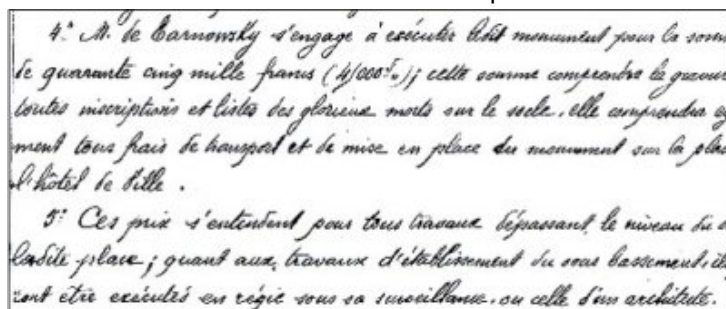 4.° M. de Tarnowsky s'engage à exécuter ledit monument pour la som
de quarante cinq mille francs (45000 f.); cette somme comprendra la gravur
toutes inscriptions et listes des glorieux morts sur le socle, elle comprendra ég
ment tous frais de transport et de mise en place du monument sur la plac
l'hôtel de Ville.
5° Ces prix s'entendent pour tous travaux dépassant le niveau du
ladite place; quant aux travaux d'établissement du sous bassement, il
ront être exécutés en régie sous sa surveillance ou celle d'un architecte.